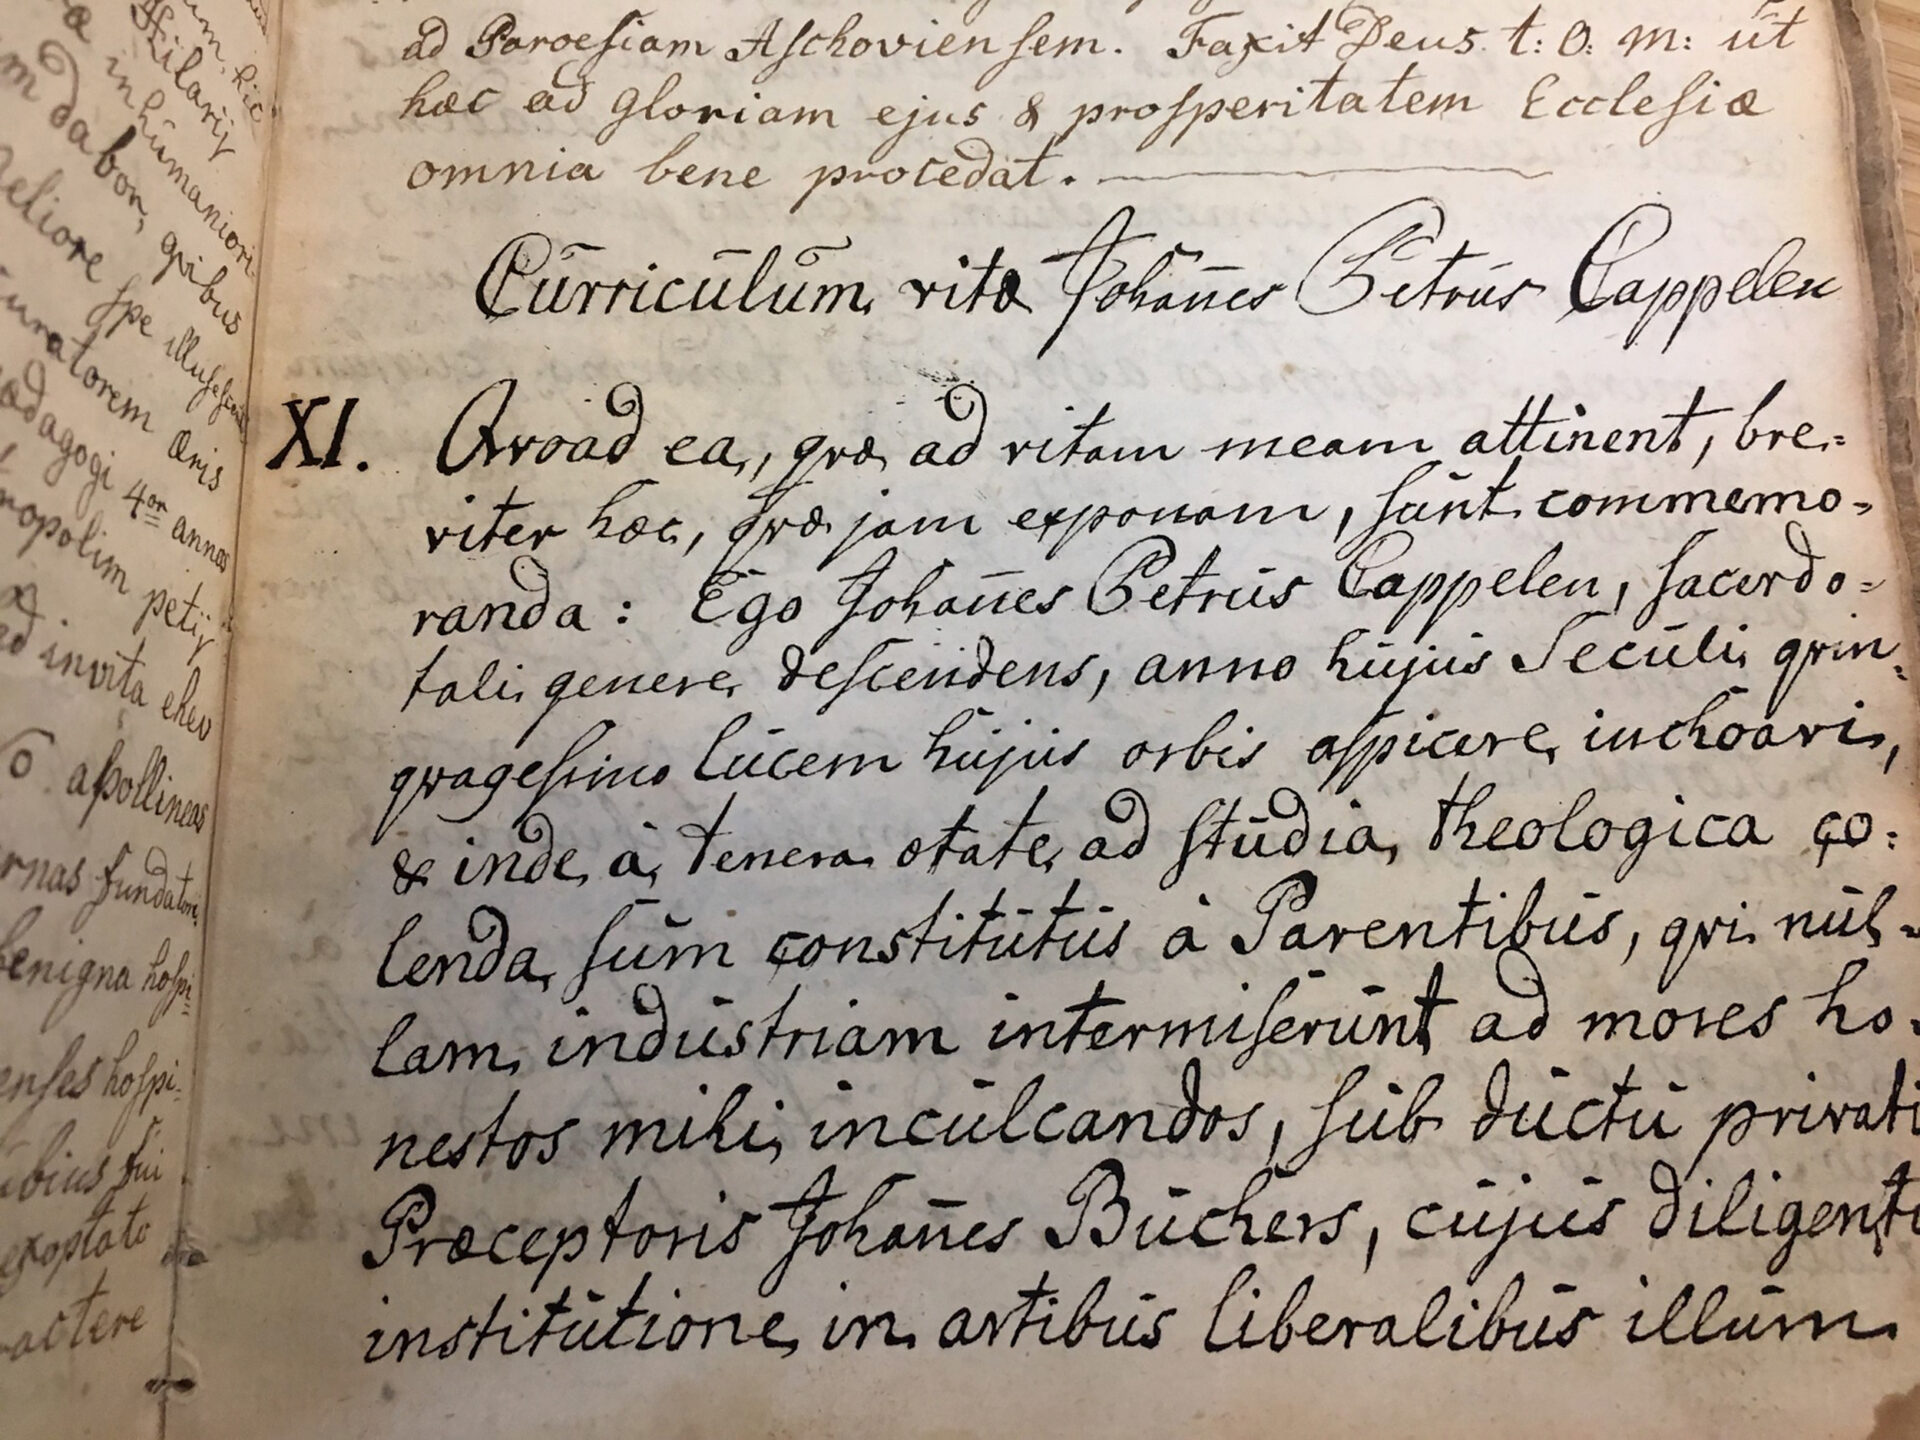 ad Paroesiam Aschoviensem. Faxit Deus t: O: M: ut
hæc ad gloriam ejus & prosperitatem Ecclesiæ
omnia bene procedat.
Curriculum vitæ Johan̄es Petrus Cappelen
XI. Qvoad ea, qvæ ad vitam meam attinent, bre=
viter hæc, qvæ jam exponam, sunt commemo=
randa: Ego Johan̄es Petrus Cappelen, sacerdo=
tali genere descendens, anno hujus Seculi qvin=
qvagesimo lucem hujus orbis aspicere inchoavi,
& inde à tenera ætate ad studia theologica co=
lenda sum constitutus à Parentibus, qvi nul=
lam industriam intermiserunt ad mores ho=
nestos mihi inculcandos, sub ductu privati
Præceptoris Johan̄es Büchers, cujus diligenti
institutione in artibus liberalibus illum
hic
Hilarij
in humaniori
dabor, qvibus
meliore spe illuscescente
curatorem æris
pædagogi 4or annos
metropolim petij
invita eheu
apollineas
fundatori
benigna hospi=
enses hospi=
fui
exoptato